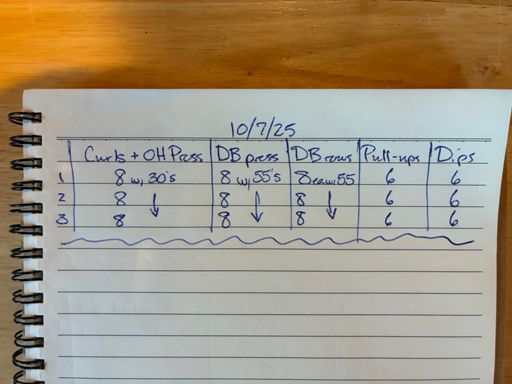 10/7/25
Curls + OH Press DB press DB rows Pull-ups Dips
1 8 w/ 30's 8 w/ 55's 8 ea w/ 55 6 6
2 8 ↓ 8 ↓ 8 ↓ 6 6
3 8 8 8 6 6